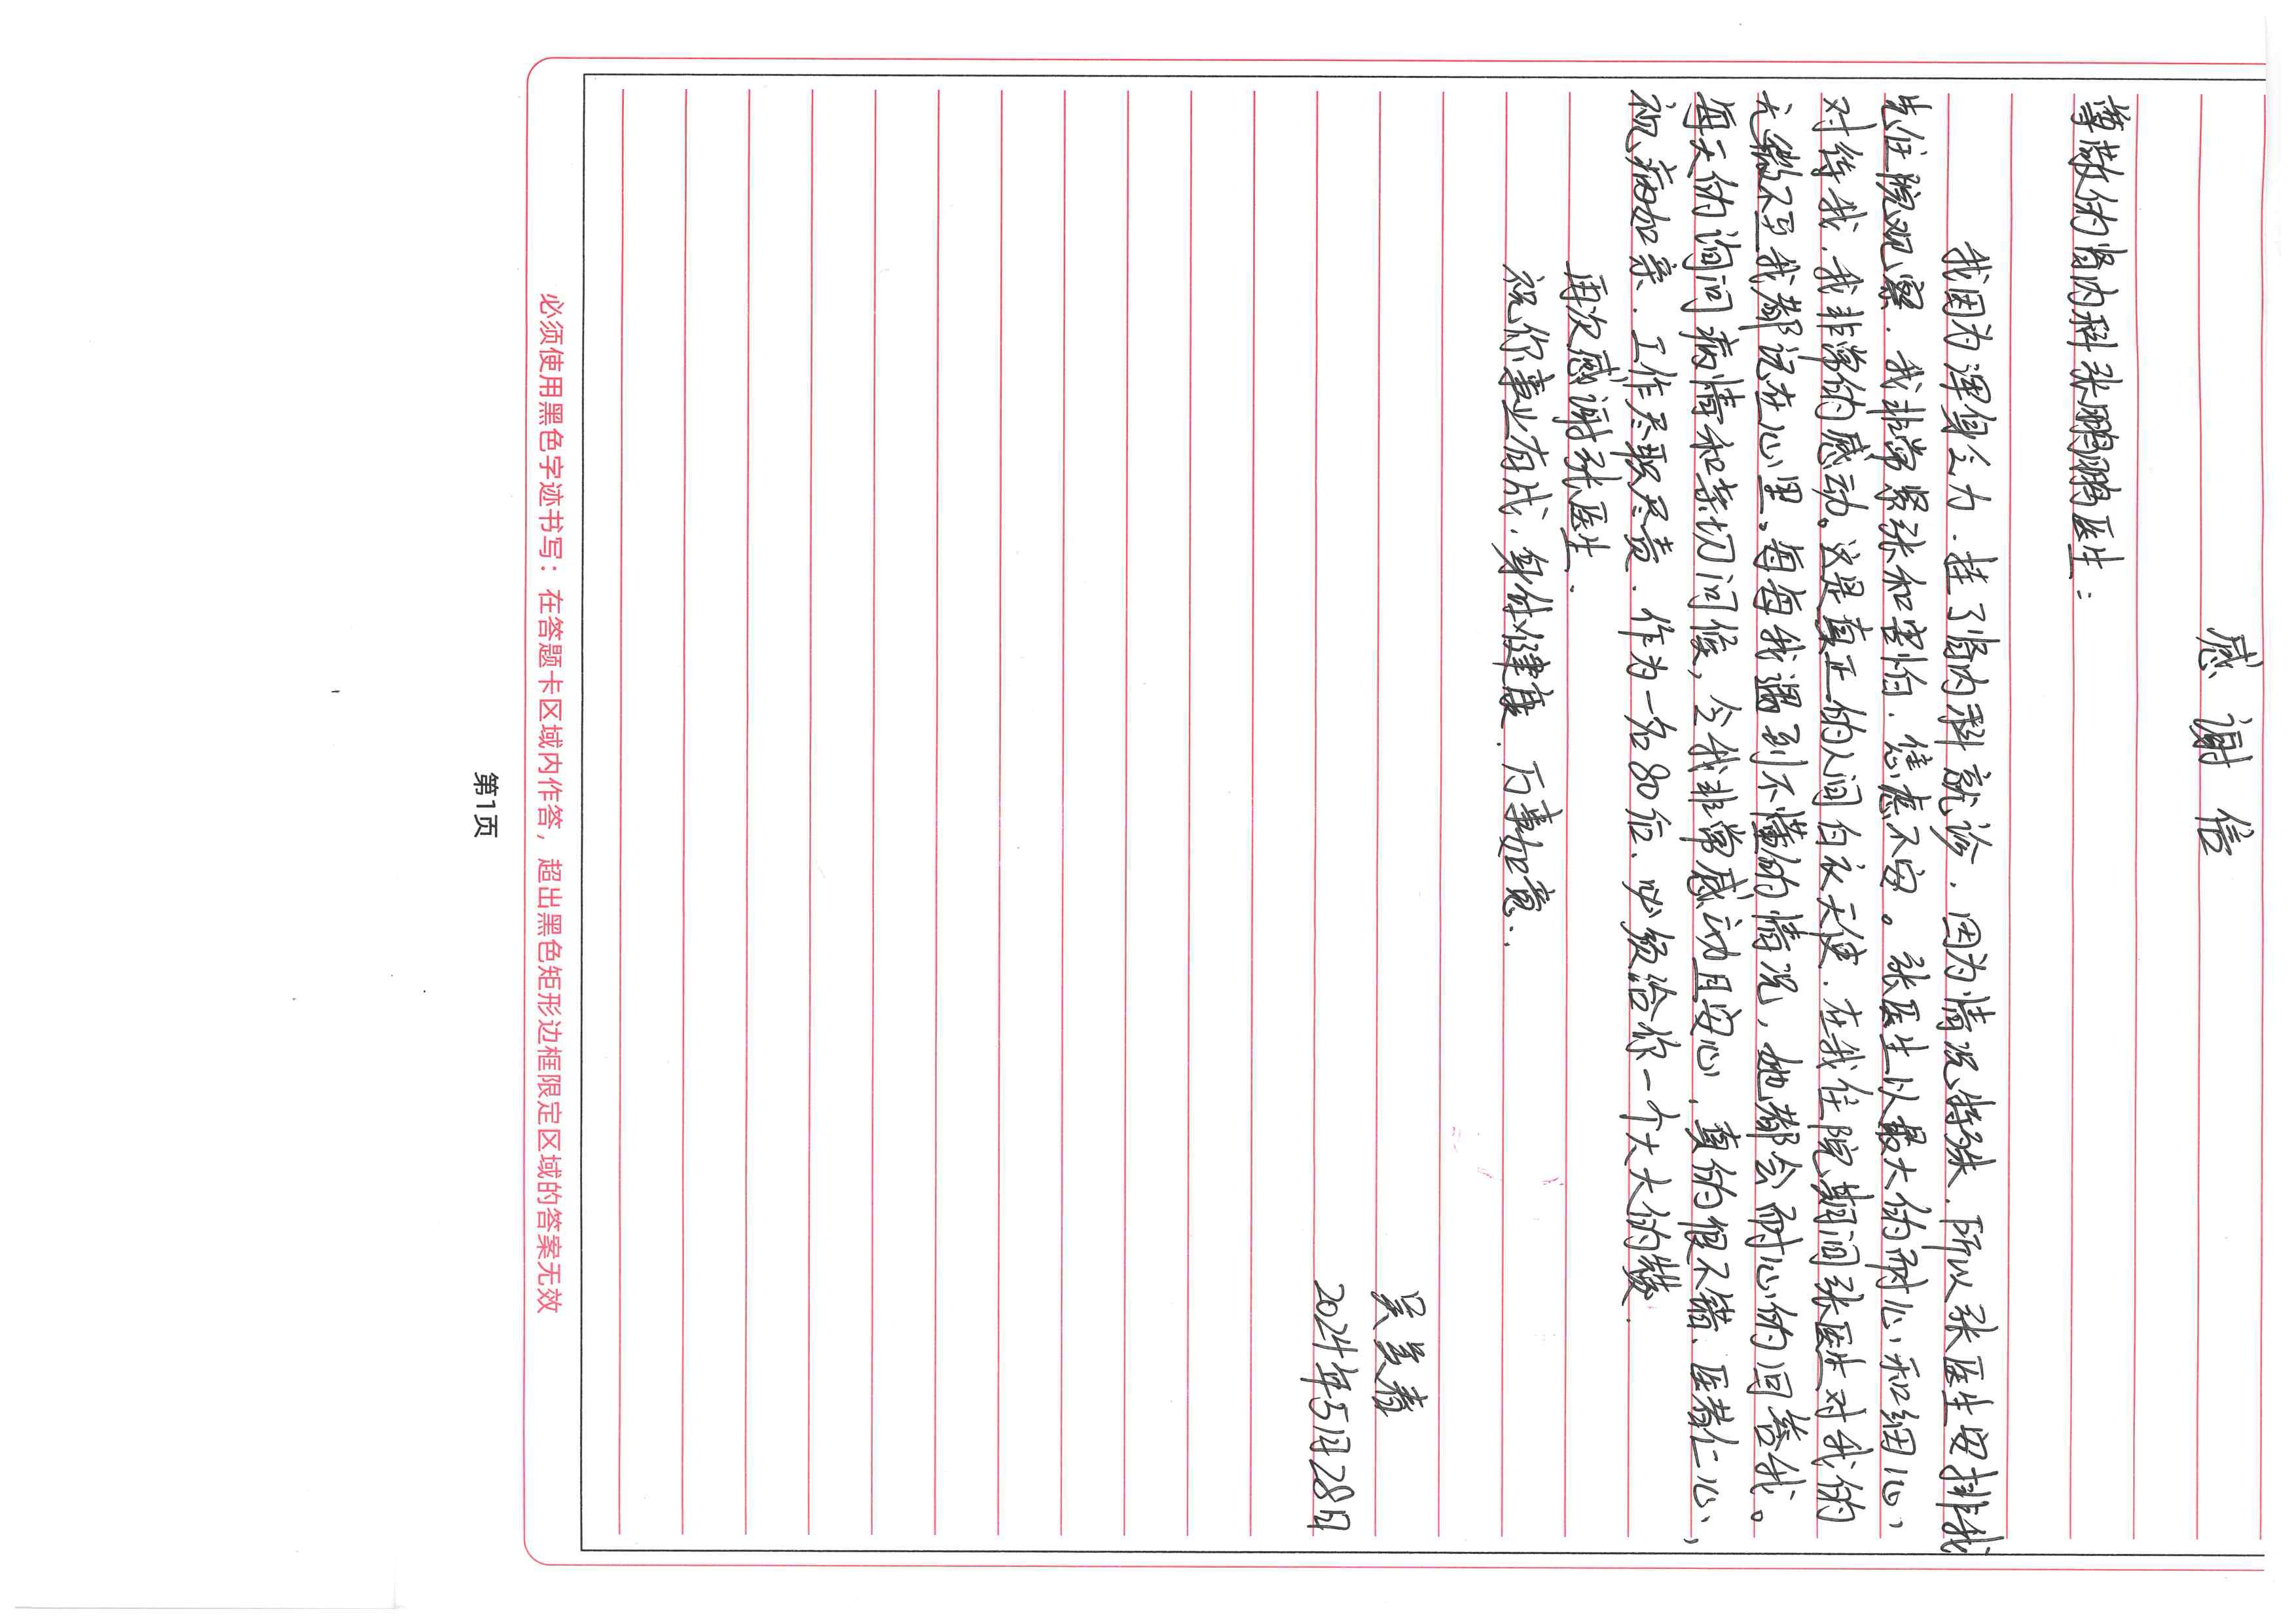 感 谢 信
尊敬的肾内科张鹏鹏医生：
我因为浑身乏力．挂了肾内科就诊．因为情况特殊．所以张医生安排我
先住院观察．我非常紧张和害怕．焦虑不安。张医生以最大的耐心和细心，
对待我．我非常的感动。这是真正的人间白衣天使．在我住院期间张医生对我的
无微不至我都记在心里。每每我遇到不懂的情况，她都会耐心的回答我。
每天的询问病情和亲切问候，令我非常感动且安心，真的很不错、医者仁心，
视病如亲．工作尽职尽责．作为一名80后．必须给你一个大大的赞．
再次感谢张医生．
祝你事业有成．身体健康．万事如意．
吴美春
2024年5月28日
必须使用黑色字迹书写：在答题卡区域内作答，超出黑色矩形边框限定区域的答案无效
第1页